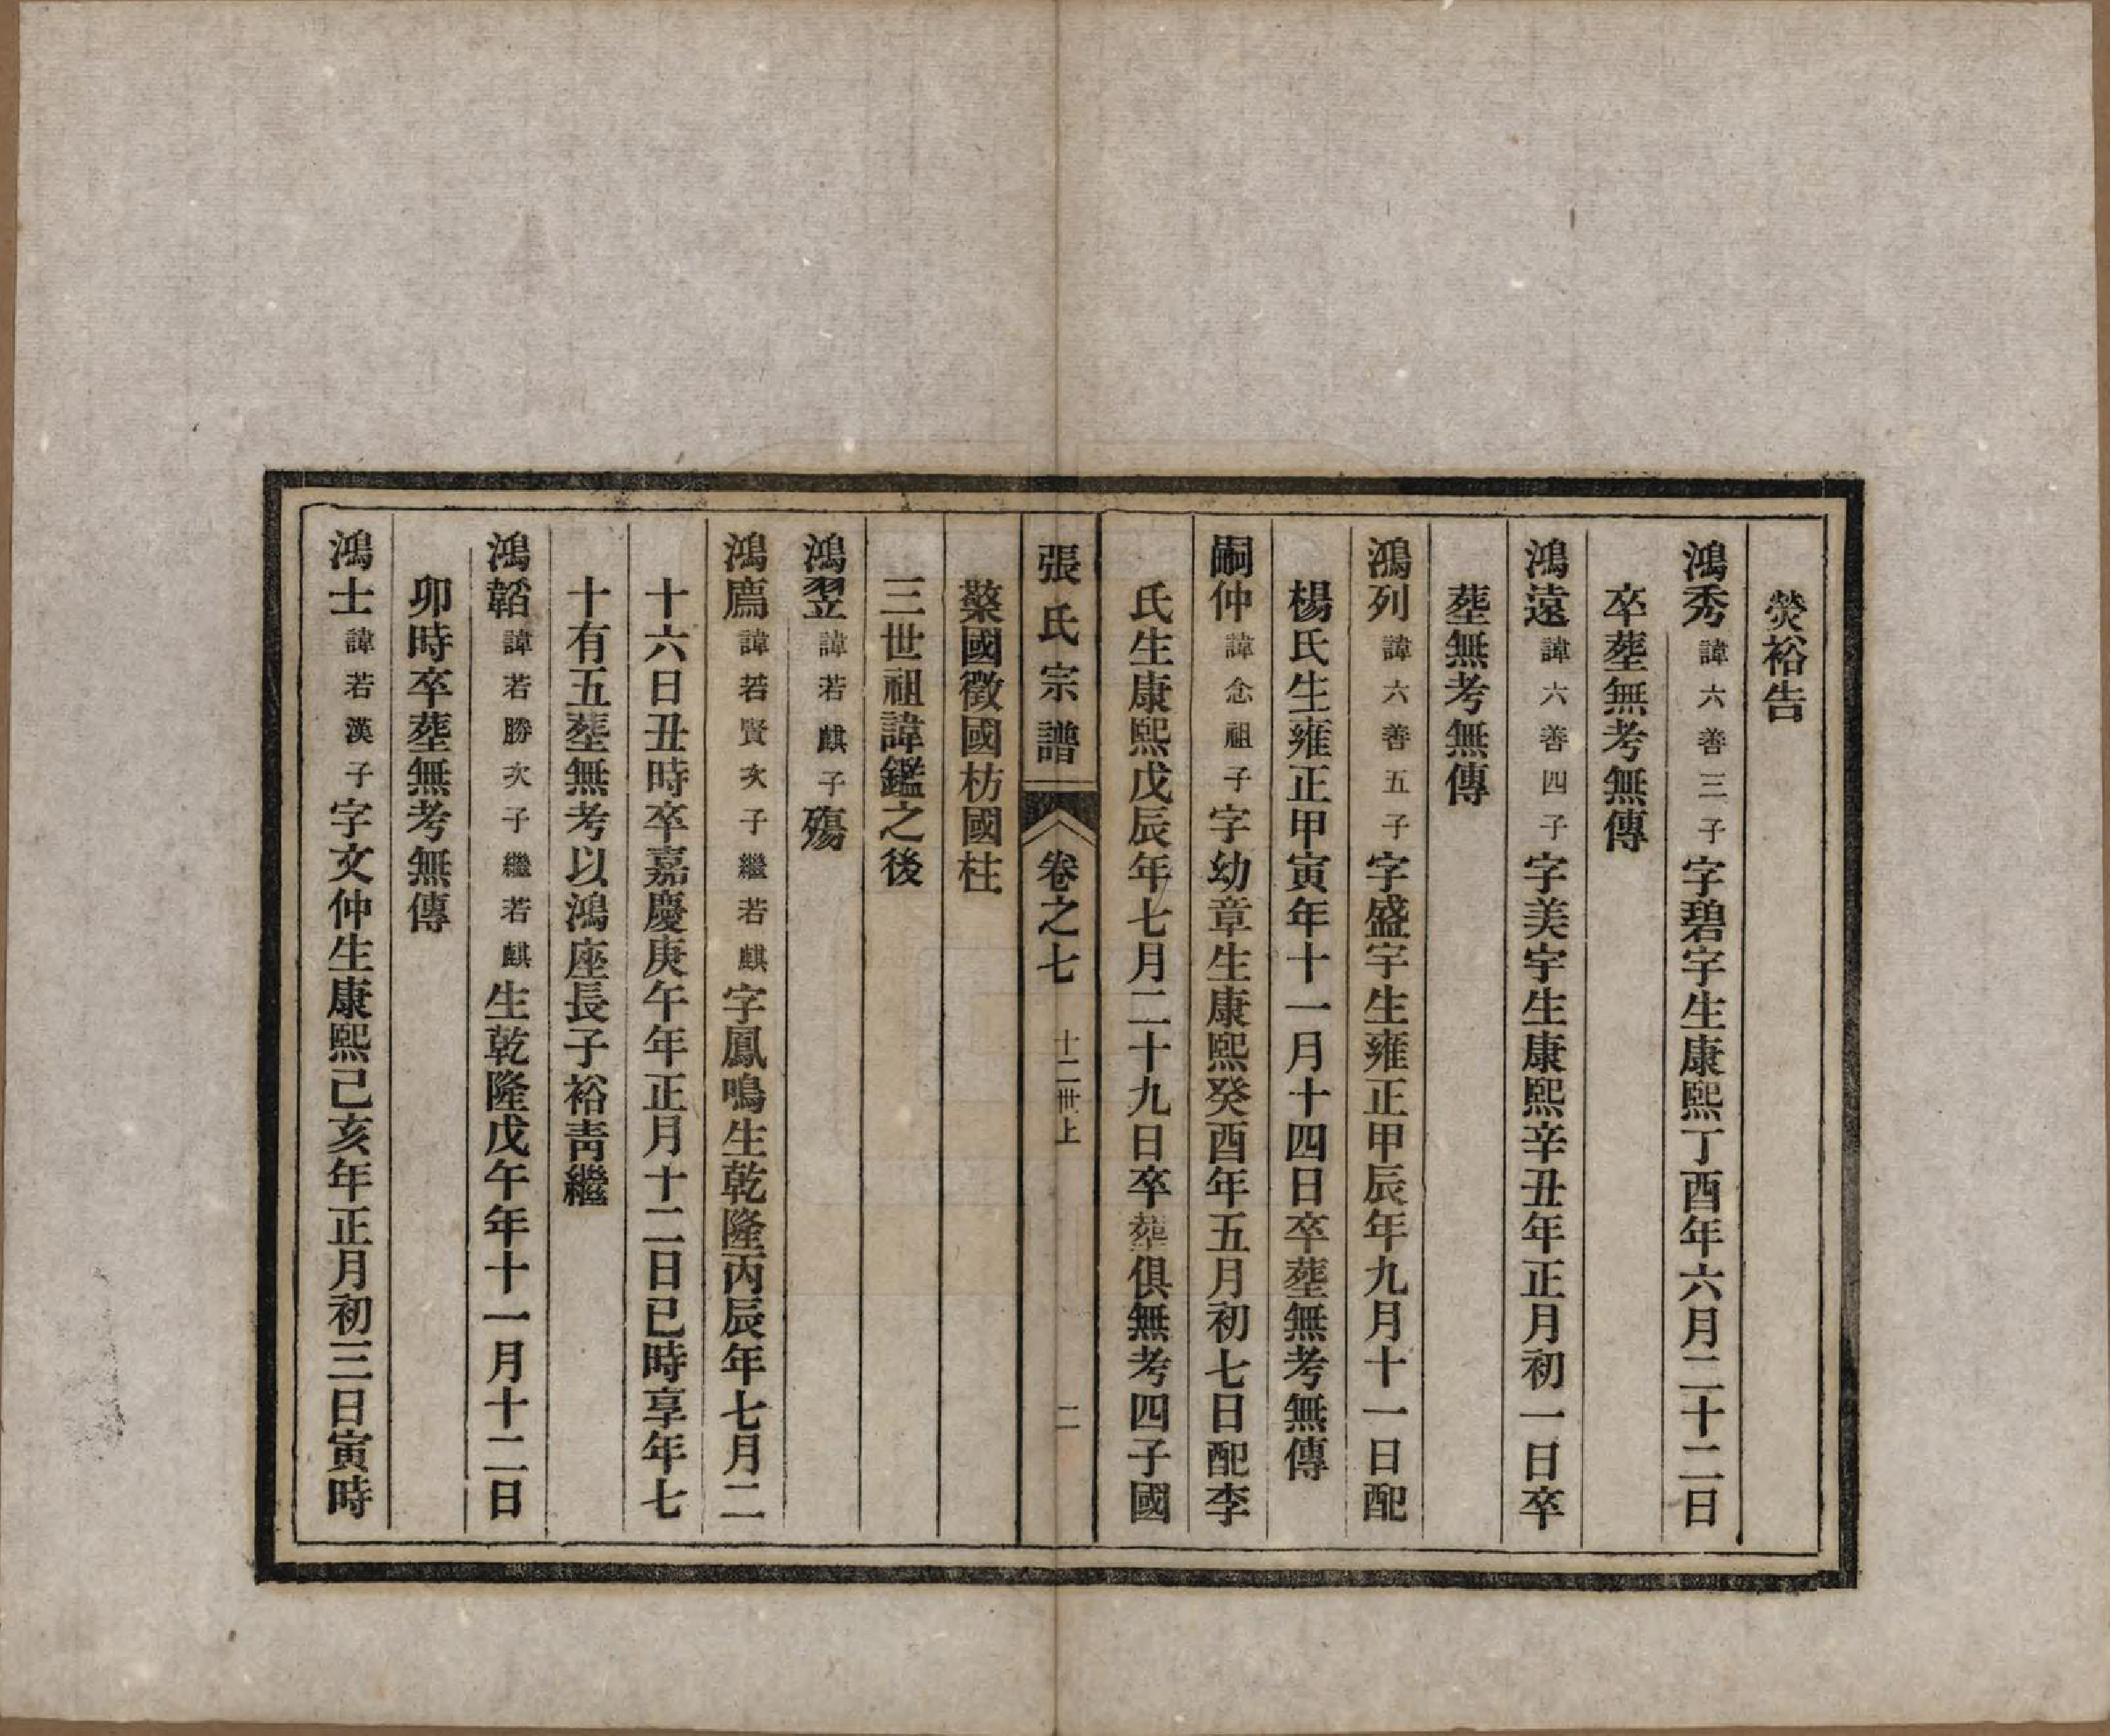 熒裕告
鴻秀諱六善三子字碧宇生康熙丁酉年六月二十二日
卒塟無考無傳
鴻遠諱六善四子字美宇生康熙辛丑年正月初一日卒
塟無考無傳
鴻列諱六善五子字盛宇生雍正甲辰年九月十一日配
楊氏生雍正甲寅年十一月十四日卒塟無考無傳
嗣仲諱念祖子字幼章生康熙癸酉年五月初七日配李
氏生康熙戊辰年七月二十九日卒塟俱無考四子國
檠國徵國枋國柱
張氏宗譜 卷之七 十二世上 二
三世祖諱鑑之後
鴻翌諱若麒子殤
鴻廌諱若賢次子繼若麒字鳳鳴生乾隆丙辰年七月二
十六日丑時卒嘉慶庚午年正月十二日巳時享年七
十有五塟無考以鴻座長子裕靑繼
鴻韜諱若勝次子繼若麒生乾隆戊午年十一月十二日
卯時卒塟無考無傳
鴻士諱若漢子字文仲生康熙己亥年正月初三日寅時